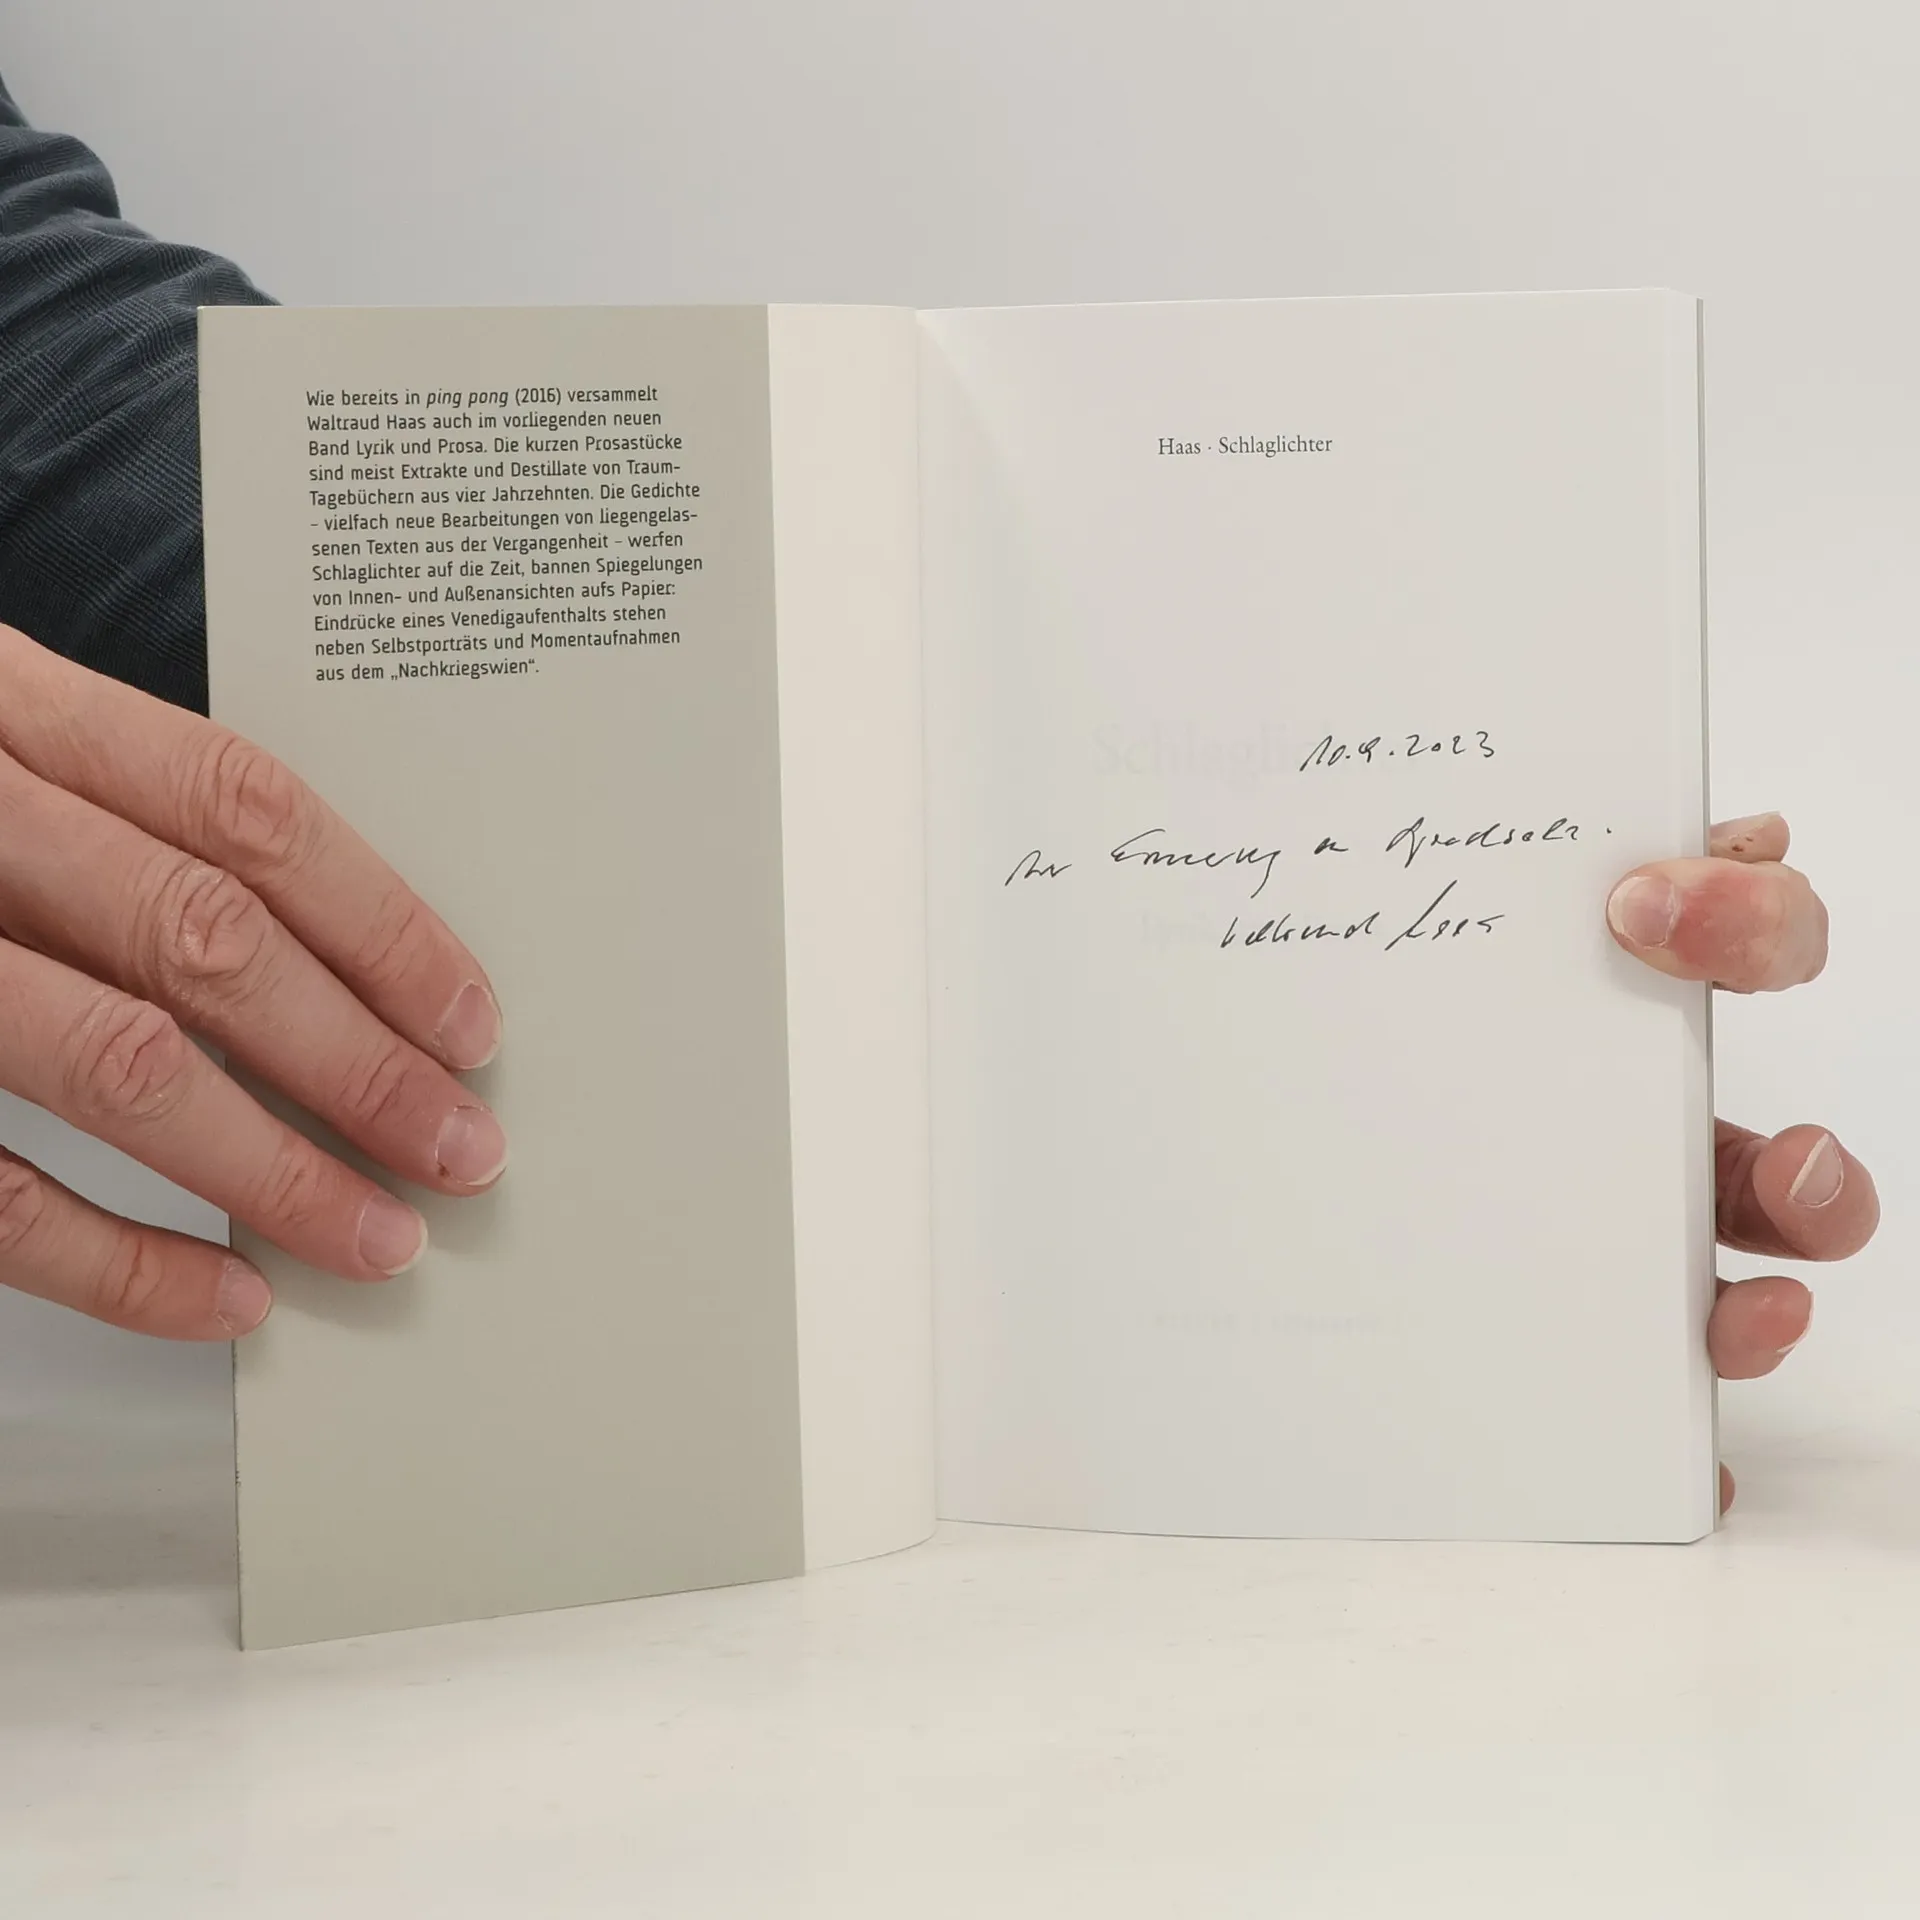 Wie bereits in ping pong (2016) versammelt
Waltraud Haas auch im vorliegenden neuen
Band Lyrik und Prosa. Die kurzen Prosastücke
sind meist Extrakte und Destillate von Traum-
Tagebüchern aus vier Jahrzehnten. Die Gedichte
– vielfach neue Bearbeitungen von liegengelas-
senen Texten aus der Vergangenheit – werfen
Schlaglichter auf die Zeit, bannen Spiegelungen
von Innen- und Außenansichten aufs Papier:
Eindrücke eines Venedigaufenthalts stehen
neben Selbstporträts und Momentaufnahmen
aus dem „Nachkriegswien“.
Haas · Schlaglichter
10.9.2023
Zur Erinnerung an
Waltraud Haas